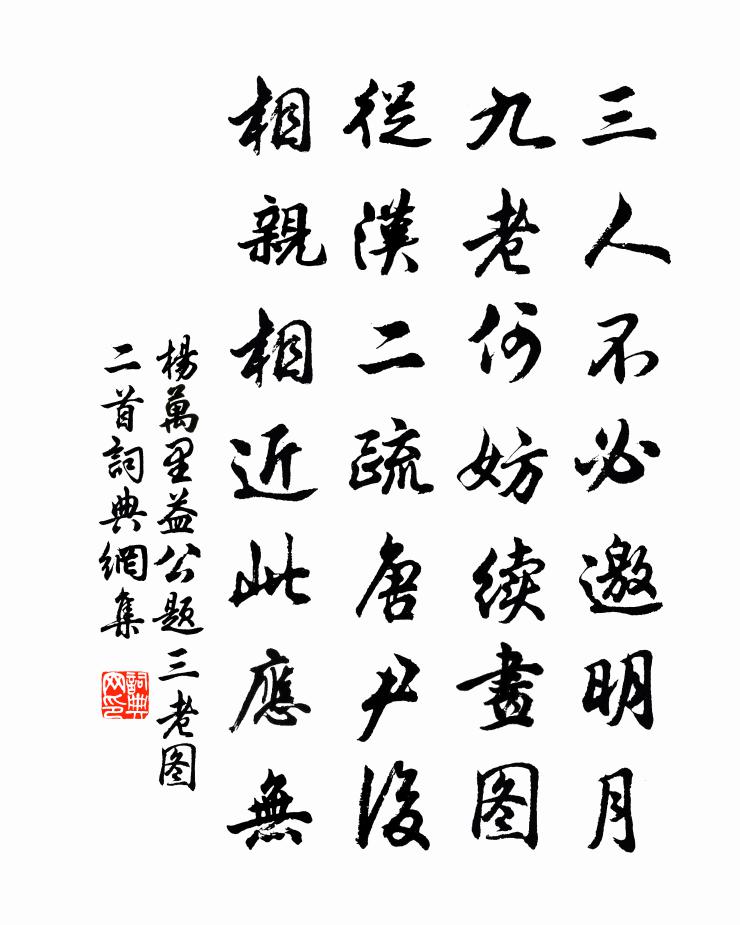 三人不必邀明月
九老何妨续畫图
從漢二疏唐尹後
相親相近此應無
楊萬里益公題三老图
二首詞典網集
詞典网印